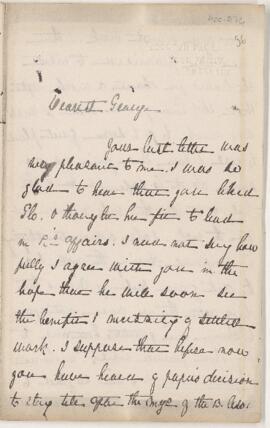 56
Dearest George
Your last letter was
very pleasant to me. I was so
glad to hear that you liked
& thought her fit to lead
in affairs. I need not say how
fully I agree with you in the
hope that he will soon see
the benefit & of settled
work. I suppose that before now
you have heard of papa's decision
to stay till after the of the B. Asso.